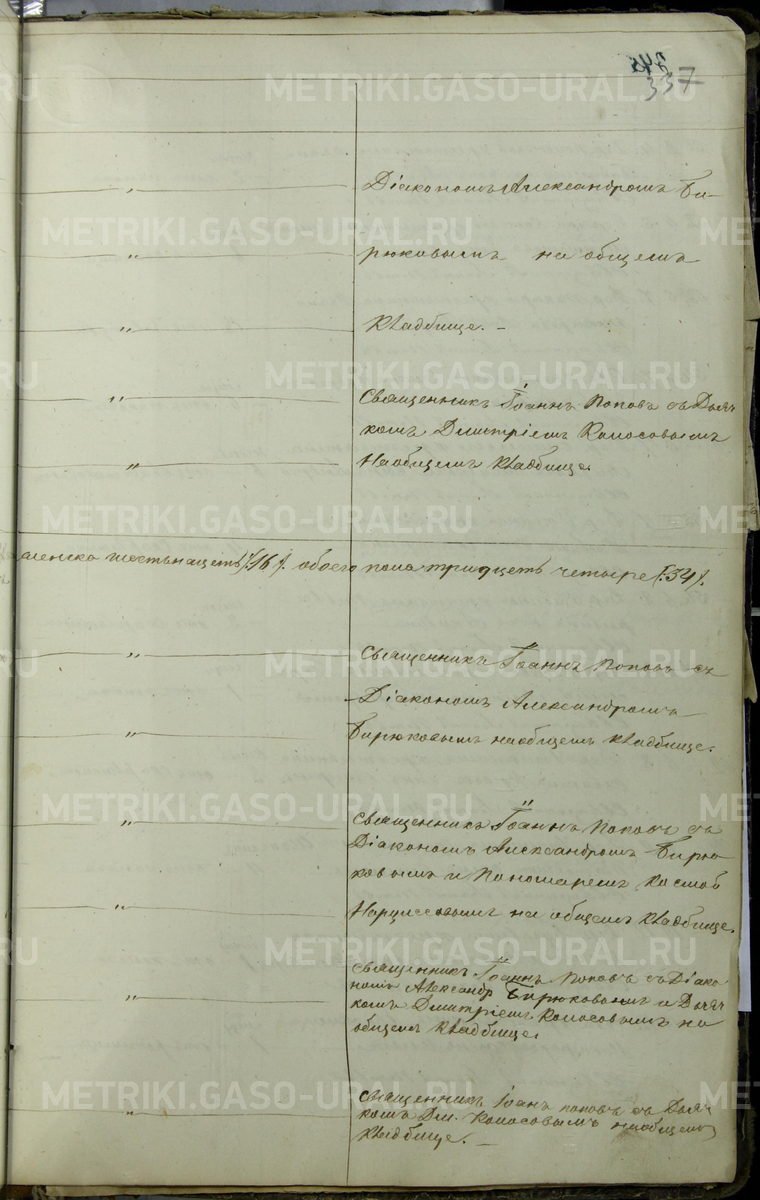 345
337
Діакономъ Александромъ Би-
рюковымъ на общемъ
кладбище. –
Священникъ Іоаннъ Поповъ съ Дьяч
комъ Димитріемъ Колосовымъ
На общемъ кладбище.
женска шестьнацеть /:16:/. обоего пола тридцеть четыре /:34:/.
Священникъ Іоаннъ Поповъ съ
Діакономъ Александромъ
Бирюковымъ на общемъ кладбище.
Священникъ Іоаннъ Поповъ съ
Діакономъ Александромъ Бирю-
ковымъ и Пономаремъ Космой
Нарциссовымъ на общемъ кладбище.
Священникъ Іоаннъ Поповъ съ Діако
номъ Александр Бирюковымъ и Дьяч
комъ Димитріемъ Колосовымъ на
общемъ кладбище.
Священникъ Іоанъ Поповъ съ Дьяч
комъ Дим. Колосовымъ на общемъ
кладбище. –
METRIKI.GASO-URAL.RU